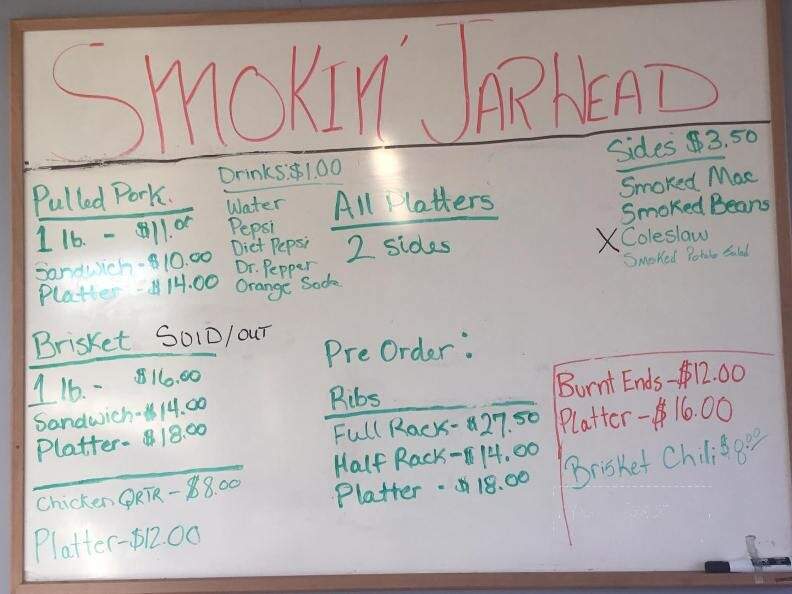 SMOKIN' JARHEAD
Pulled Pork.
1 lb. - $11.00
Sandwich - $10.00
Platter - $14.00
Drinks: $1.00
Water
Pepsi
Diet Pepsi
Dr. Pepper
Orange Soda
All Platters
2 sides
Sides $3.50
Smoked Mac
Smoked Beans
X Coleslaw
Smoked Potato Salad
Brisket SOlD/OUT
1 lb. - $16.00
Sandwich - $14.00
Platter - $18.00
Chicken QRTR - $8.00
Platter - $12.00
Pre Order:
Ribs
Full Rack - $27.50
Half Rack - $14.00
Platter - $18.00
Burnt Ends - $12.00
Platter - $16.00
Brisket Chili $8.00